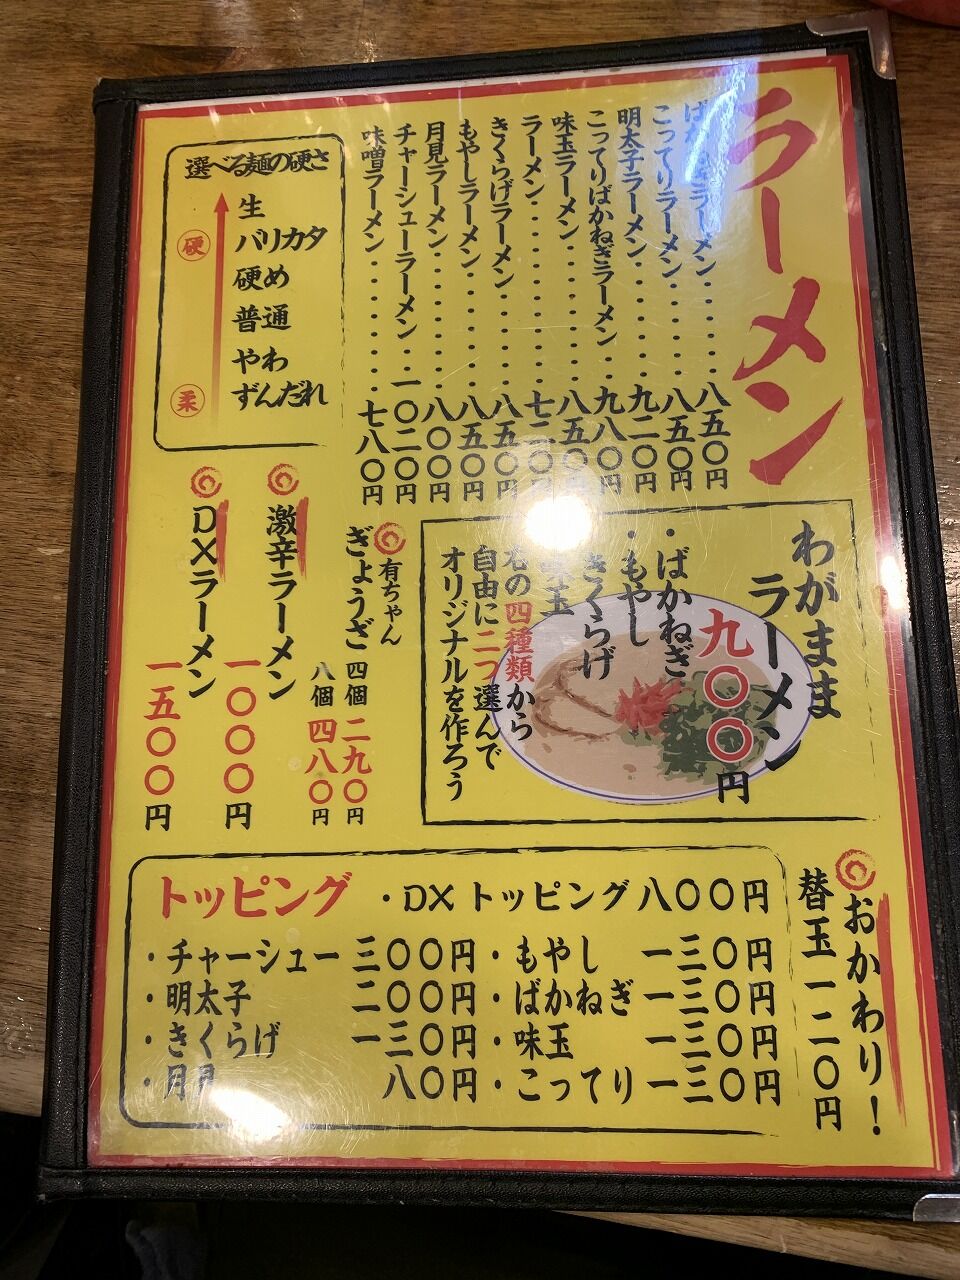 ラーメン
ばかねぎラーメン・・・・八五〇円
こってりラーメン・・・・八五〇円
明太子ラーメン・・・・・九二〇円
こってりばかねぎラーメン・九八〇円
味玉ラーメン・・・・・・八五〇円
ラーメン・・・・・・・・七二〇円
きくらげラーメン・・・・八五〇円
もやしラーメン・・・・・八五〇円
月見ラーメン・・・・・・八〇〇円
チャーシューラーメン・・一〇二〇円
味噌ラーメン・・・・・・七八〇円
選べる麺の硬さ
硬
柔
生
バリカタ
硬め
普通
やわ
ずんだれ
わがまま
ラーメン
九〇〇円
・ばかねぎ
・もやし
きくらげ
味玉
右の四種類から
自由に二つ選んで
オリジナルを作ろう
有ちゃん
ぎょうざ
四個 二九〇円
八個 四八〇円
激辛ラーメン
一〇〇〇円
DXラーメン
一五〇〇円
おかわり!
替玉一二〇円
トッピング
・DXトッピング八〇〇円
・チャーシュー 三〇〇円
・もやし 一三〇円
・明太子 二〇〇円
・ばかねぎ 一三〇円
・きくらげ 一三〇円
・味玉 一三〇円
・月見 八〇円
・こってり 一三〇円